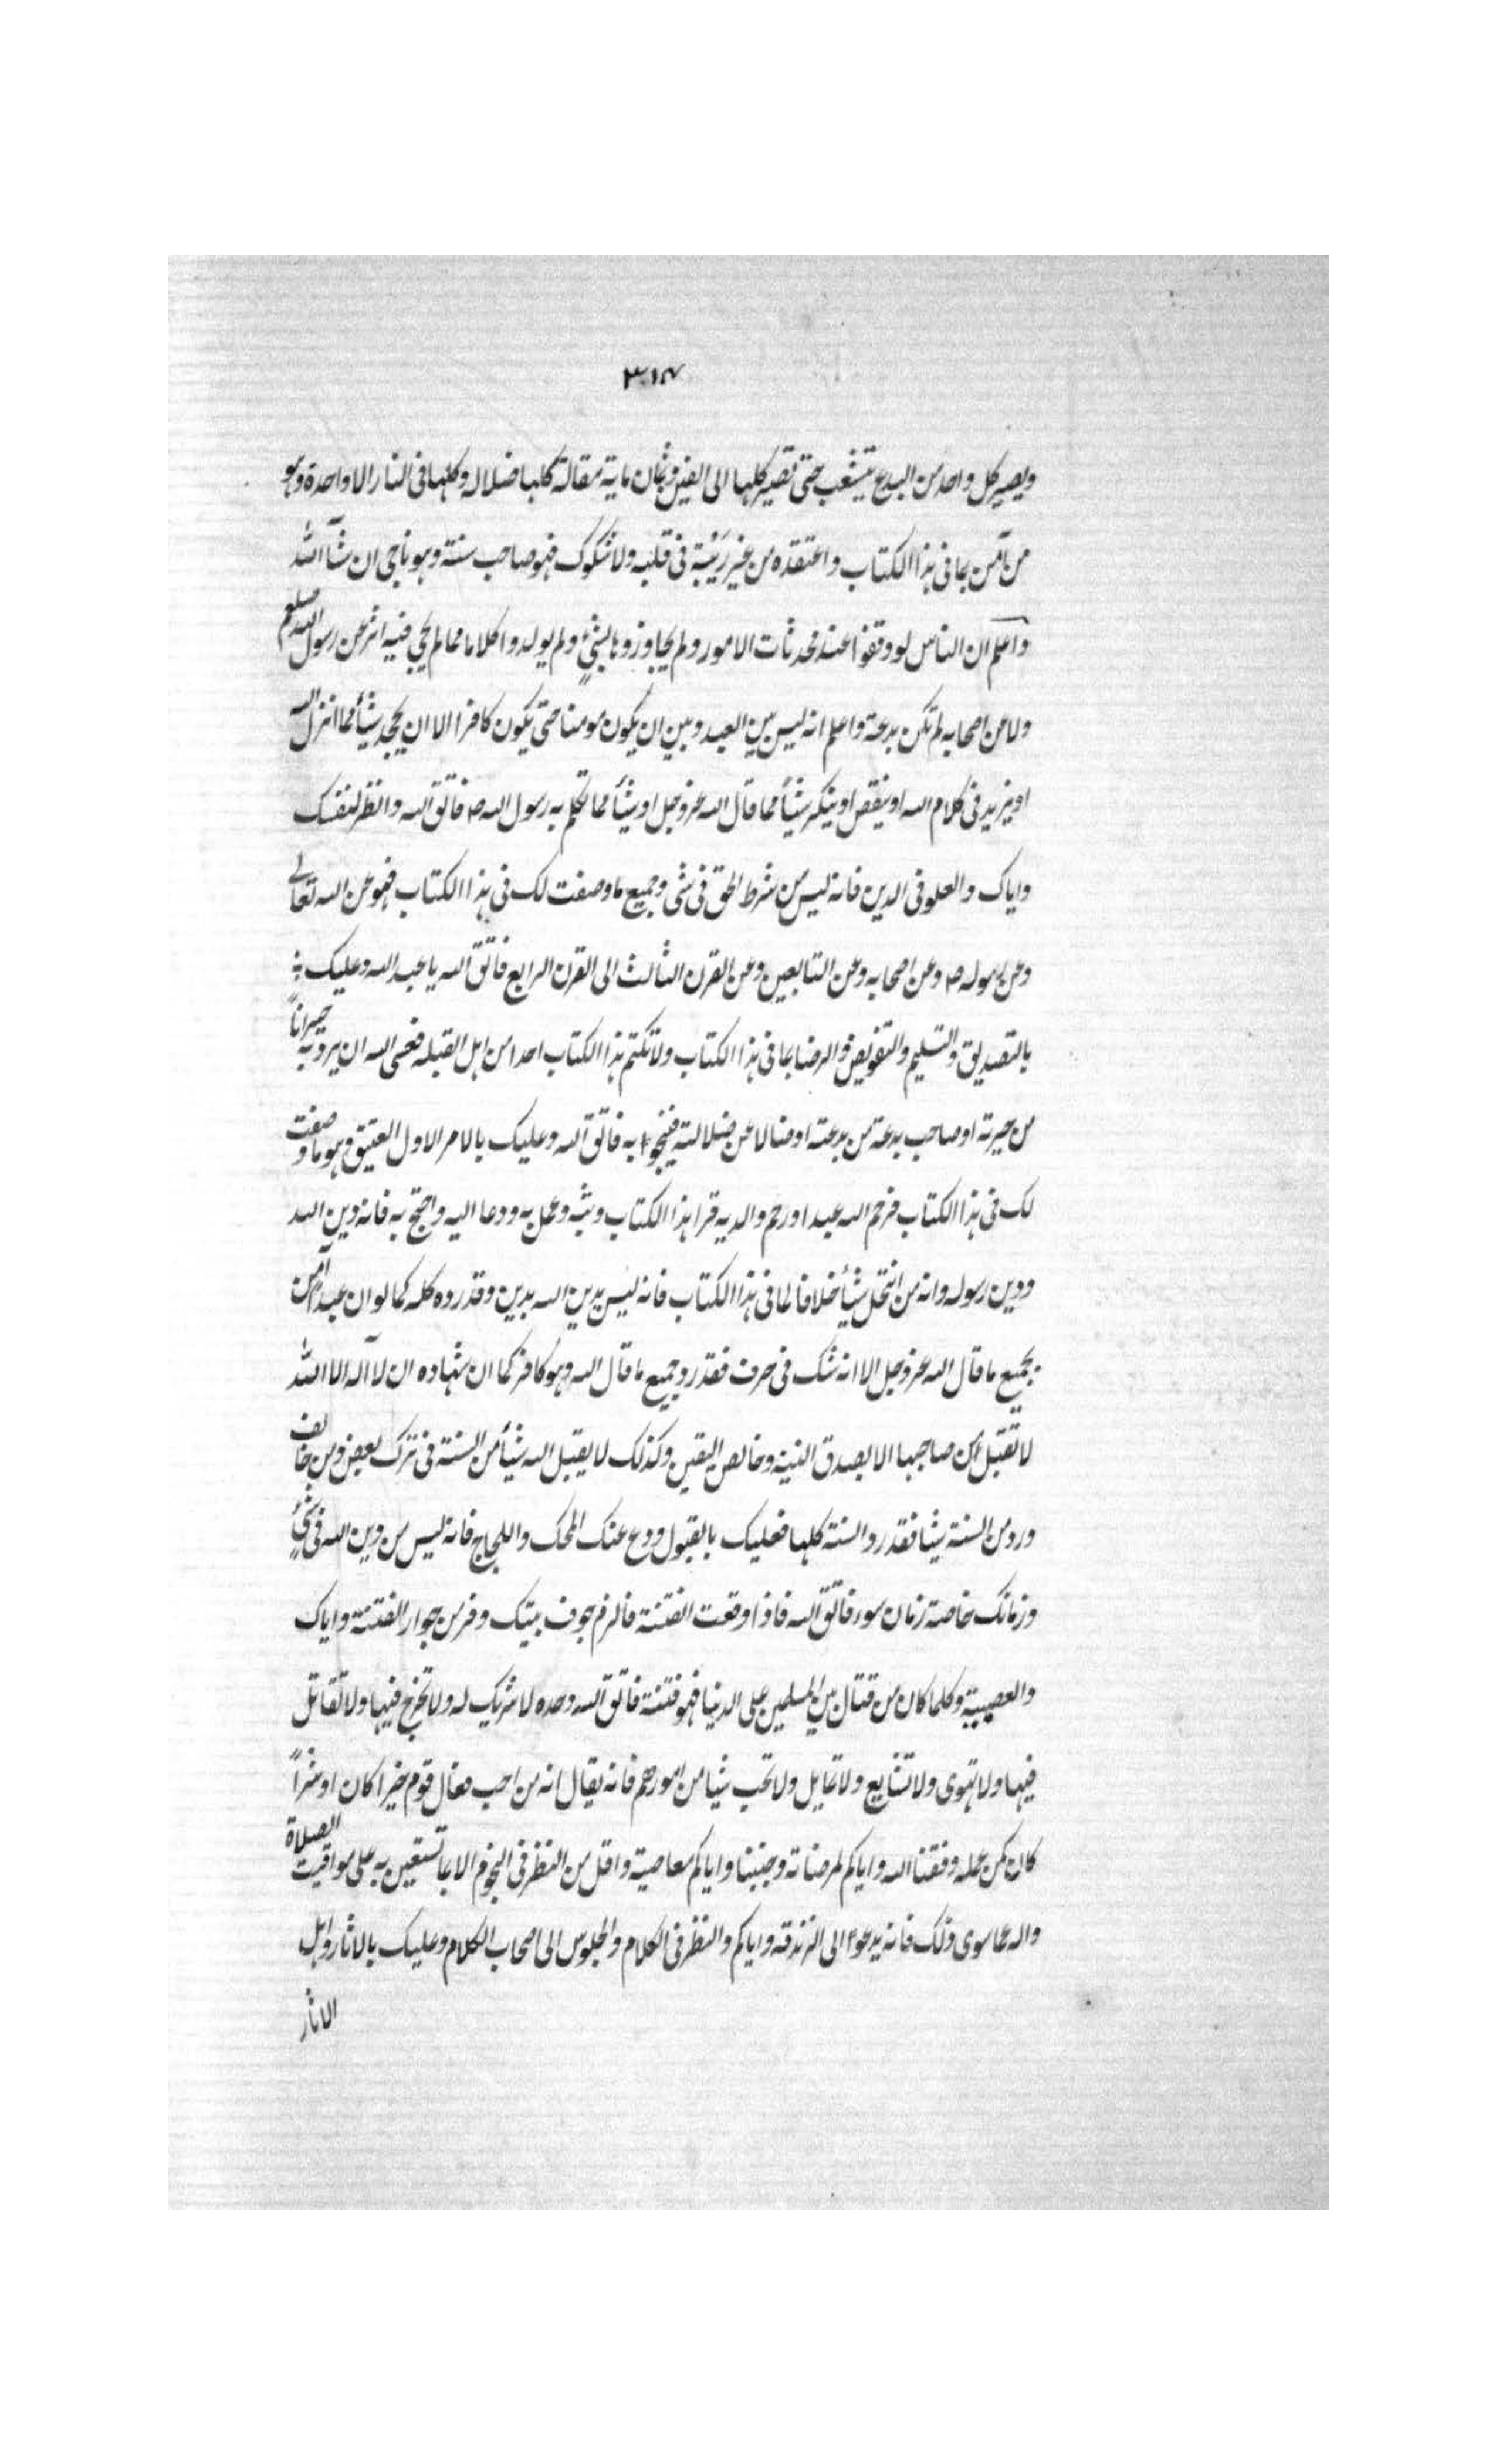 ٣١٧
ويصير كل واحد من البدع يتشعب حتى تصير كلها الى الفين وثمان ماية مقالة كلها ضلاله وكلها فى النار الا واحدة وهو
من آمن بما فى هذا الكتاب واعتقده من غير رَيْبَة فى قلبه ولا شكوك فهو صاحب سنة وهو ناجى ان شآ الله
واعلم ان الناس لو وقفوا عند محدثات الامور ولم يجاوزوها بشئ ولم يولدوا كلاما مما لم يجى فيه اثر عن رسول الله صلعم
ولا عن اصحابه لم تكن بدعة واعلم انه ليس بين العبد وبين ان يكون مومنا حتى يكون كافرا الا ان يجحد شيأ مما انزل الله
او يزيد فى كلام الله او ينقص او ينكر شيأً مما قال الله عزوجل او شيأ مما تكلم به رسول الله ص فاتق الله وانظر لنفسك
واياك والعلو فى الدين فانه ليس من شرط الحق فى شى وجميع ما وصفت لك فى هذا الكتاب فهو عن الله تعالى
وعن رسوله ص وعن اصحابه وعن التابعين وعن القرن الثالث الى القرن الرابع فاتق الله يا عبد الله وعليك
بالتصديق والتسليم والتفويض والرضا بما فى هذا الكتاب ولا تكتم هذا الكتاب احدا من اهل القبله فعسى الله ان يرد به حيراناً
من حيرته او صاحب بدعة من بدعته او ضالا عن ضلالته فينجوا به فاتق الله وعليك بالامر الاول العتيق وهو ما وصفت
لك فى هذا الكتاب فرحم الله عبدا ورحم والديه قرا هذا الكتاب وبثه وعمل به ودعا اليه واحتج به فانه دين الله
ودين رسوله وانه من انتحل شيأ خلافا لما فى هذا الكتاب فانه ليس يدين الله بدين وقد رده كله كما لو ان عبدا آمن
بجميع ما قال الله عزوجل الا انه شك فى حرف فقد رد جميع ما قال الله وهو كافر كما ان شهاده ان لا آله الا الله
لا تقبل من صاحبها الا بصدق النية وخالص اليقين وكذلك لا يقبل الله شيأ من السنة فى ترك بعض ومن خالف
ورد من السنة شيئا فقد رد السنة كلها فعليك بالقبول ودع عنك المحك واللجاج فانه ليس من دين الله فى شئ
وزمانك خاصة زمان سوء فاتق الله فاذا وقعت الفتنة فالزم جوف بيتك وفر من جوار الفتنة واياك
والعصبية وكلما كان من قتال بين المسلمين على الدنيا فهو فتنة فاتق الله وحده لا شريك له ولا تخرج فيها ولا تقاتل
فيها ولا تهوى ولا تتابع ولا تمايل ولا تحب شيا من امورهم فانه يقال انه من احب فعال قوم خيرا كان او شراً
كان كمن عمله وفقنا الله واياكم لمرضاته وجنبنا واياكم معاصيه واقل من النظر فى النجوم الا بما تستعين به على مواقيت الصلاة
واله عما سوى ذلك فانه يدعوا الى الزندقه واياكم والنظر فى الكلام والجلوس الى اصحاب الكلام وعليك بالاثار واهل
الاثار